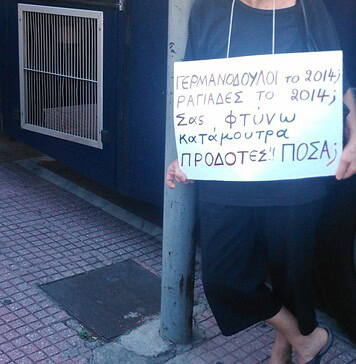 ΓΕΡΜΑΝΟΔΟΥΛΟΙ το 2014;
ΡΑΓΙΑΔΕΣ ΤΟ 2014;
Σας φτύνω
κατάμουτρα
ΠΡΟΔΟΤΕΣ!! ΠΟΣΑ;